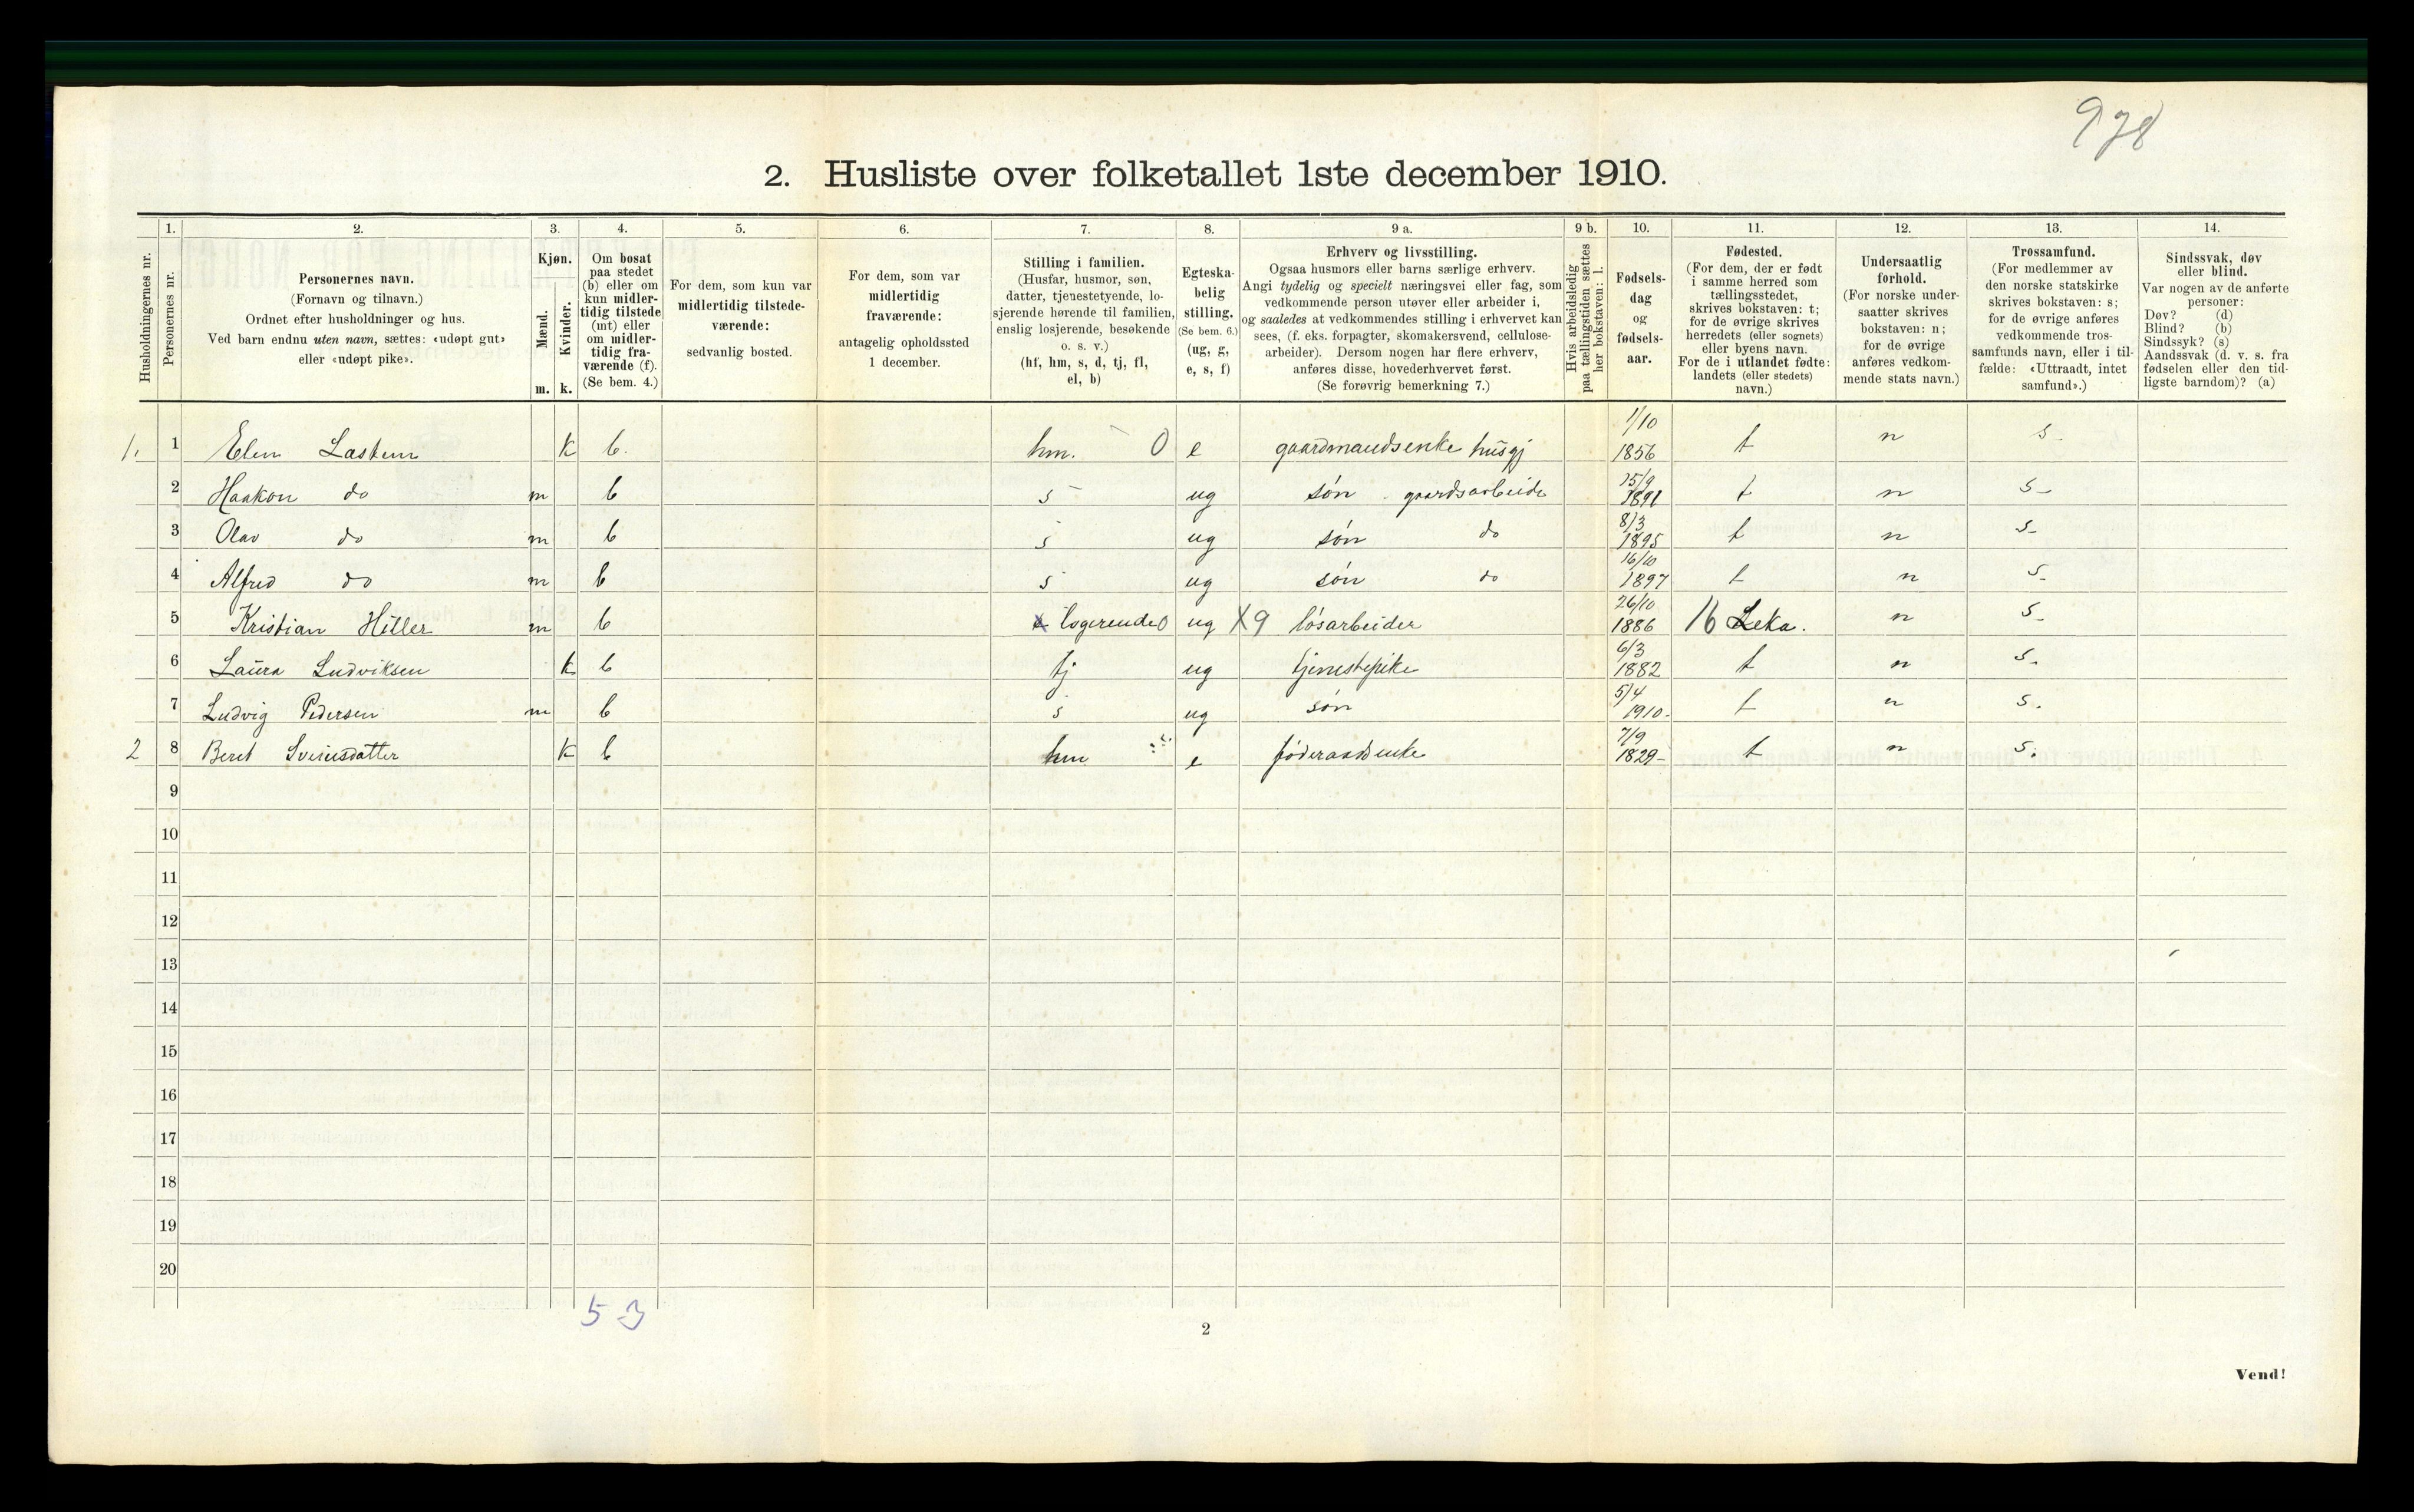 978
2. Husliste over folketallet 1ste december 1910.
Husholdningernes nr.
1.
Personernes nr.
2.
Personernes navn.
(Fornavn og tilnavn.)
Ordnet efter husholdninger og hus.
Ved barn endnu uten navn, sættes: «udøpt gut»
eller «udøpt pike».
3.
Kjøn.
Mænd.
Kvinder.
m. k.
4.
Om bosat
paa stedet
(b) eller om
kun midler-
tidig tilstede
(mt) eller
om midler-
tidig fra-
værende (f).
(Se bem. 4.)
5.
For dem, som kun var
midlertidig tilstede-
værende:
sedvanlig bosted.
6.
For dem, som var
midlertidig
fraværende:
antagelig opholdssted
1 december.
7.
Stilling i familien.
(Husfar, husmor, søn,
datter, tjenestetyende, lo-
sjerende hørende til familien,
enslig losjerende, besøkende
o. s. v.)
(hf, hm, s, d, tj, fl,
el, b)
8.
Egteska-
belig
stilling.
(Se bem. 6.)
(ug, g,
e, s, f)
9 a.
Erhverv og livsstilling.
Ogsaa husmors eller barns særlige erhverv.
Angi tydelig og specielt næringsvei eller fag, som
vedkommende person utøver eller arbeider i,
og saaledes at vedkommendes stilling i erhvervet kan
sees, (f. eks. forpagter, skomakersvend, cellulose-
arbeider). Dersom nogen har flere erhverv,
anføres disse, hovederhvervet først.
(Se forøvrig bemerkning 7.)
9 b.
Hvis arbeidsledig
paa tællingstiden sættes
her bokstaven: l.
10.
Fødsels-
dag
og
fødsels-
aar.
11.
Fødested.
(For dem, der er født
i samme herred som
tællingsstedet,
skrives bokstaven: t;
for de øvrige skrives
herredets (eller sognets)
eller byens navn.
For de i utlandet fødte:
landets (eller stedets)
navn.)
12.
Undersaatlig
forhold.
(For norske under-
saatter skrives
bokstaven: n;
for de øvrige
anføres vedkom-
mende stats navn.)
13.
Trossamfund.
(For medlemmer av
den norske statskirke
skrives bokstaven: s;
for de øvrige anføres
vedkommende tros-
samfunds navn, eller i til-
fælde: «Uttraadt, intet
samfund».)
14.
Sindssvak, døv
eller blind.
Var nogen av de anførte
personer:
Døv? (d)
Blind? (b)
Sindssyk? (s)
Aandssvak (d. v. s. fra
fødselen eller den tid-
ligste barndom)? (a)
1. 1 Elen k b. hm. 0 e gaardmandsenke husgj 1/10 1856 t n s
2 Haakon do m b s ug søn gaardsarbeide 15/9 1891 t n s
3 Olav do m b s ug søn do 8/3 1895 t n s
4 Alfred do m b s ug søn do 16/10 1897 t n s
5 Kristian Hiller m b logerende 0 ug X9 løsarbeider 26/10 1886 16 Leka. n s
6 Laura Ludviksen k b tj ug tjenestepike 6/3 1882 t n s.
7 Ludvig Pedersen m b s ug søn 5/4 1910. t n s.
2 8 Beret k b hm e føderaadsenke 7/9 1829 t n s.
9
10
11
12
13
14
15
16
17
18
19
20
5 3
2
Vend!